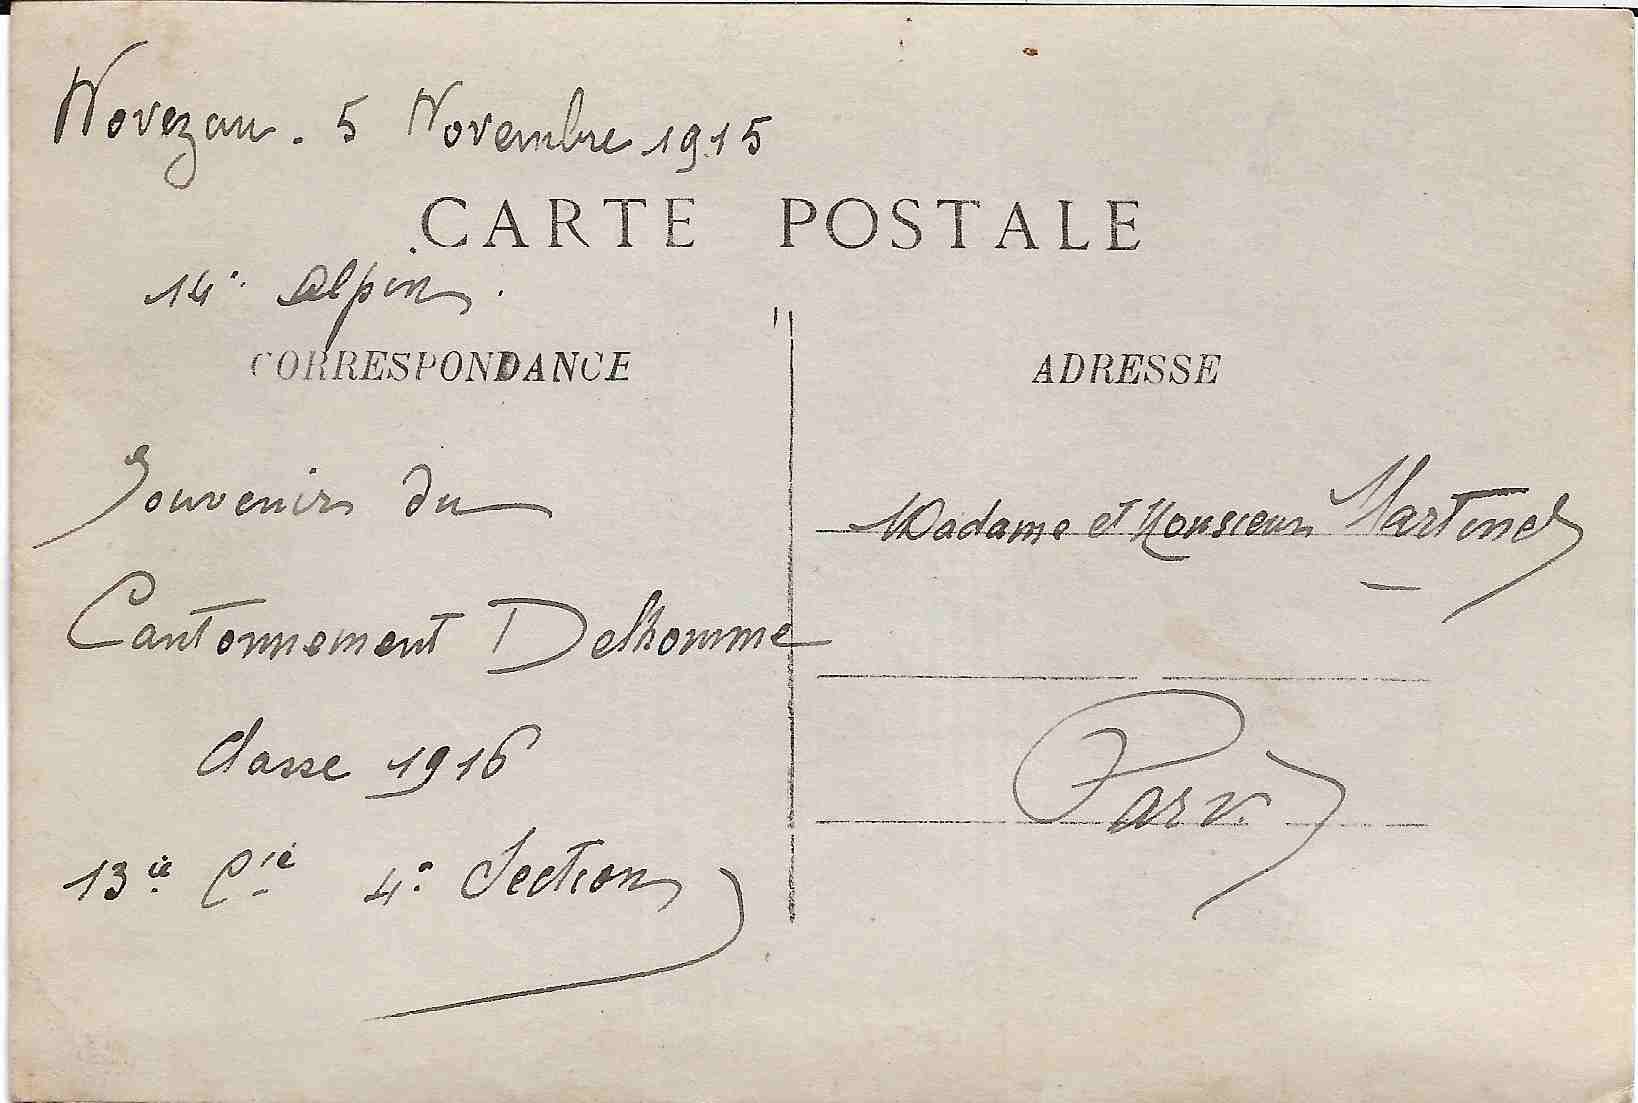 Novezan. 5 Novembre 1915
CARTE POSTALE
14e Alpin.
CORRESPONDANCE
Souvenir du
Cantonnement Delhomme
Classe 1916
13ie Cie 4e Section
ADRESSE
Madame et Monsieur Martinel